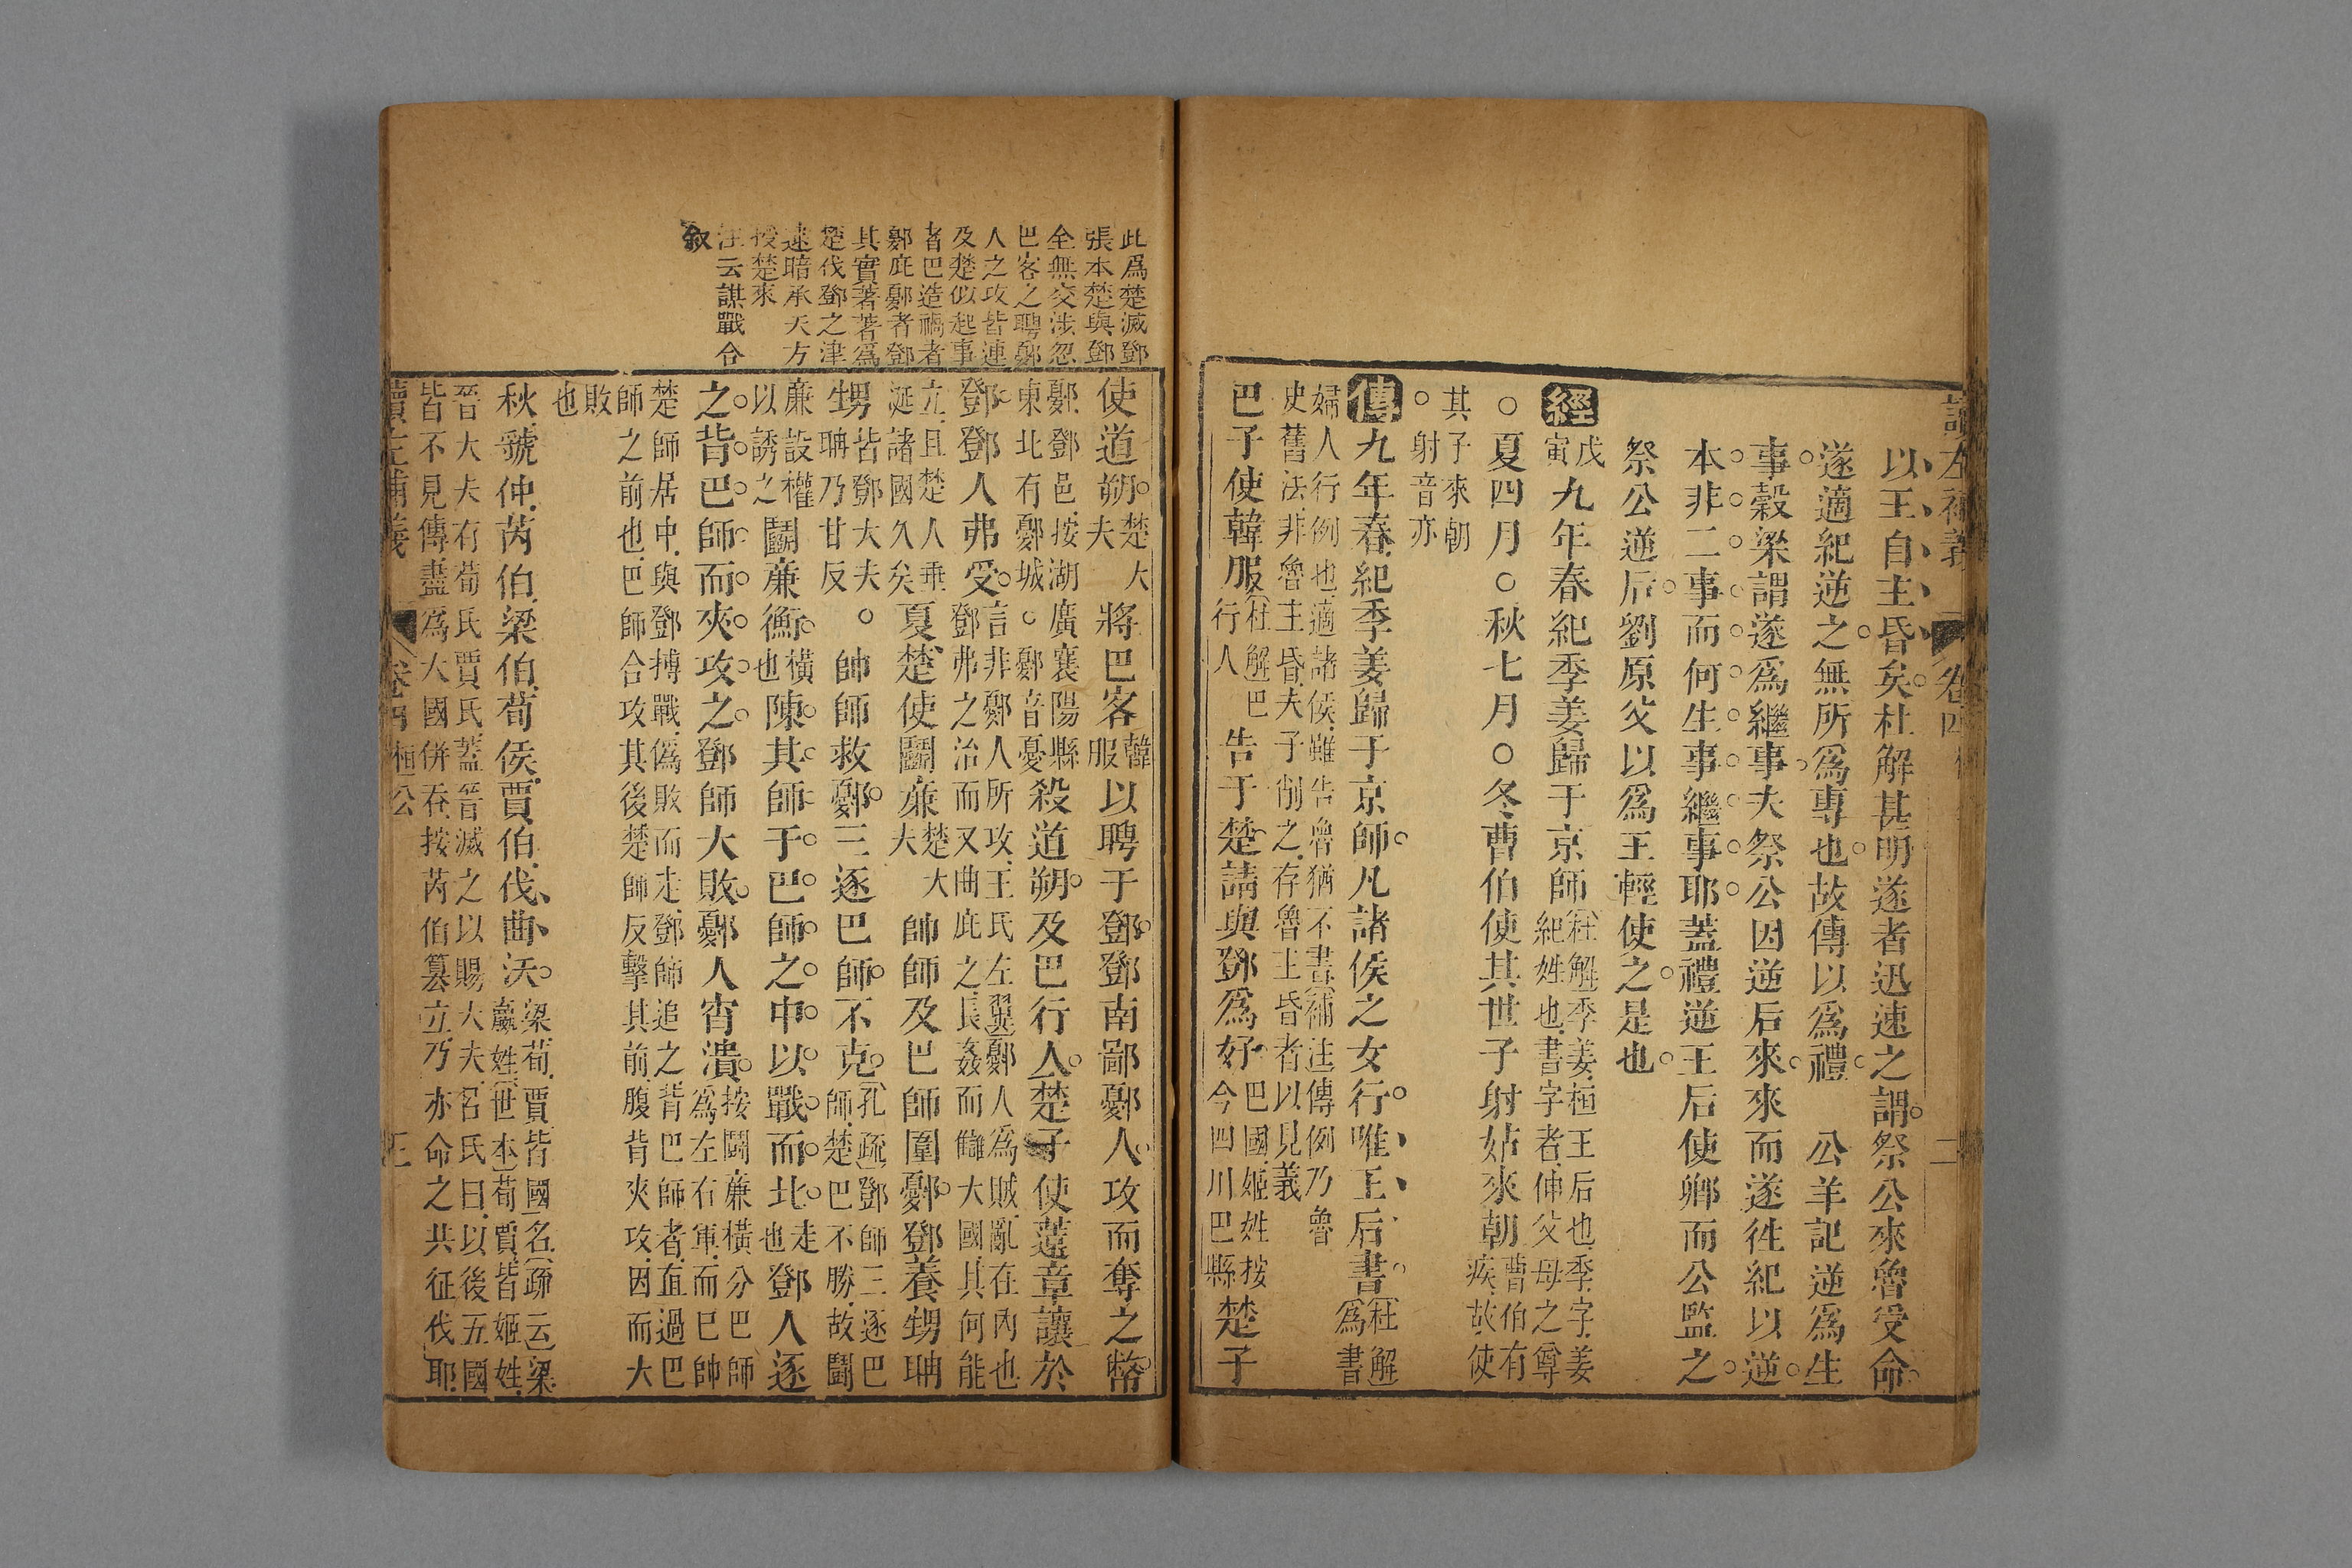 讀左補義
卷四
二
以王自主昏矣杜解甚明遂者迅速之謂祭公來魯受命
遂適紀逆之無所爲專也故傳以爲禮　公羊記逆爲生
事穀梁謂遂爲繼事夫祭公因逆后來來而遂徃紀以逆
本非二事而何生事繼事耶蓋禮逆王后使卿而公監之
祭公逆后劉原父以爲王輕使之是也
經
戊
寅
九年春紀季姜歸于京師
杜解季姜桓王后也季字姜
紀姓也書字者伸父母之尊
○夏四月○秋七月○冬曹伯使其世子射姑來朝
曹伯有
疾故使
其子來朝
○射音亦
傳
九年春紀季姜歸于京師凡諸侯之女行唯王后書
杜解
爲書
婦人行例也適諸侯雖告魯猶不書補注傳例乃魯
史舊法非魯主昏夫子削之存魯主昏者以見義
巴子使韓服
杜解巴
行人
告于楚請與鄧爲好
巴國姬姓按
今四川巴縣
楚子
使道朔
楚大
夫
將巴客
韓
服
以聘于鄧鄧南鄙鄾人攻而奪之幣
鄾鄧邑按湖廣襄陽縣
東北有鄾城○鄾音憂
殺道朔及巴行人楚子使薳章讓於
鄧鄧人弗受
言非鄾人所攻王氏左翼鄾人爲賊亂在內也
鄧弗之治而又曲庇之長姦而讎大國其何能
立且楚人垂
涎諸國久矣
夏楚使鬭廉
楚大
夫
帥師及巴師圍鄾鄧養甥聃
甥
皆鄧大夫○
聃乃甘反
帥師救鄾三逐巴師不克
孔疏鄧師三逐巴
師楚巴不勝故鬭
廉設權
以誘之
鬭廉衡
橫
也
陳其師于巴師之中以戰而北
走
也
鄧人逐
之背巴師而夾攻之鄧師大敗鄾人宵潰
按鬭廉橫分巴師
爲左右軍而已帥
楚師居中與鄧搏戰僞敗而走鄧師追之背巴師者直過巴
師之前也巴師合攻其後楚師反擊其前腹背夾攻因而大
敗
也
秋虢仲芮伯梁伯荀侯賈伯伐曲沃
梁荀賈皆國名疏云梁
嬴姓世本荀賈皆姬姓
晉大夫有荀氏賈氏蓋晉滅之以賜大夫名氏曰以後五國
皆不見傳盡爲大國併吞按芮伯篡立乃亦命之共征伐耶
讀左補義
卷四
桓公
三
此爲楚滅鄧
張本楚與鄧
全無交涉忽
巴客之聘鄾
人之攻皆連
及楚似起事
者巴造禍者
鄾庇鄾者鄧
其實著著爲
楚伐鄧之津
逮暗承天方
授楚來
汪云謀戰合
敘